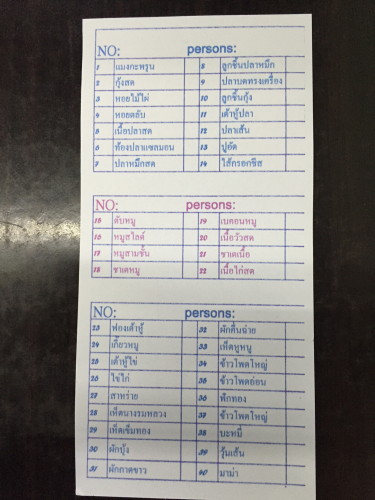 NO: persons:
1 แมงกะพรุน 8 ลูกชิ้นปลาหมึก
2 กุ้งสด 9 ปลาบดทรงเครื่อง
3 หอยไม้ไผ่ 10 ลูกชิ้นกุ้ง
4 หอยตลับ 11 เต้าหู้ปลา
5 เนื้อปลาสด 12 ปลาเส้น
6 ท้องปลาแซลมอน 13 ปูอัด
7 ปลาหมึกสด 14 ไส้กรอกชีส
NO: persons:
15 ตับหมู 19 เบคอนหมู
16 หมูสไลด์ 20 เนื้อวัวสด
17 หมูสามชั้น 21 ซาเตเนื้อ
18 ซาเตหมู 22 เนื้อไก่สด
NO: persons:
23 ฟองเต้าหู้ 32 ผักคื่นฉ่าย
24 เกี๊ยวหมู 33 เห็ดหูหนู
25 เต้าหู้ไข่ 34 ข้าวโพดใหญ่
26 ไข่ไก่ 35 ข้าวโพดอ่อน
27 สาหร่าย 36 ฟักทอง
28 เห็ดนางรมหลวง 37 ข้าวโพดใหญ่
29 เห็ดเข็มทอง 38 บะหมี่
30 ผักบุ้ง 39 วุ้นเส้น
31 ผักกาดขาว 40 มาม่า